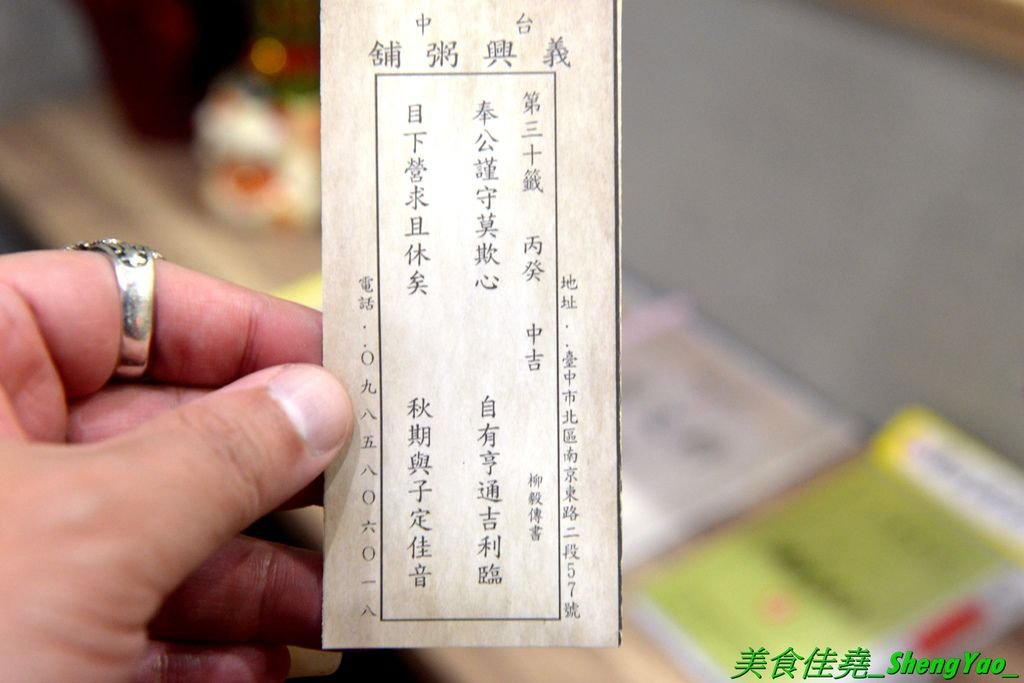 台中
義興粥舖
地址：臺中市北區南京東路二段57號
第三十籤 丙癸 中吉 柳毅傳書
奉公謹守莫欺心 自有亨通吉利臨
目下營求且休矣 秋期與子定佳音
電話：〇九八五八〇六〇一八
美食佳堯_ShengYao_